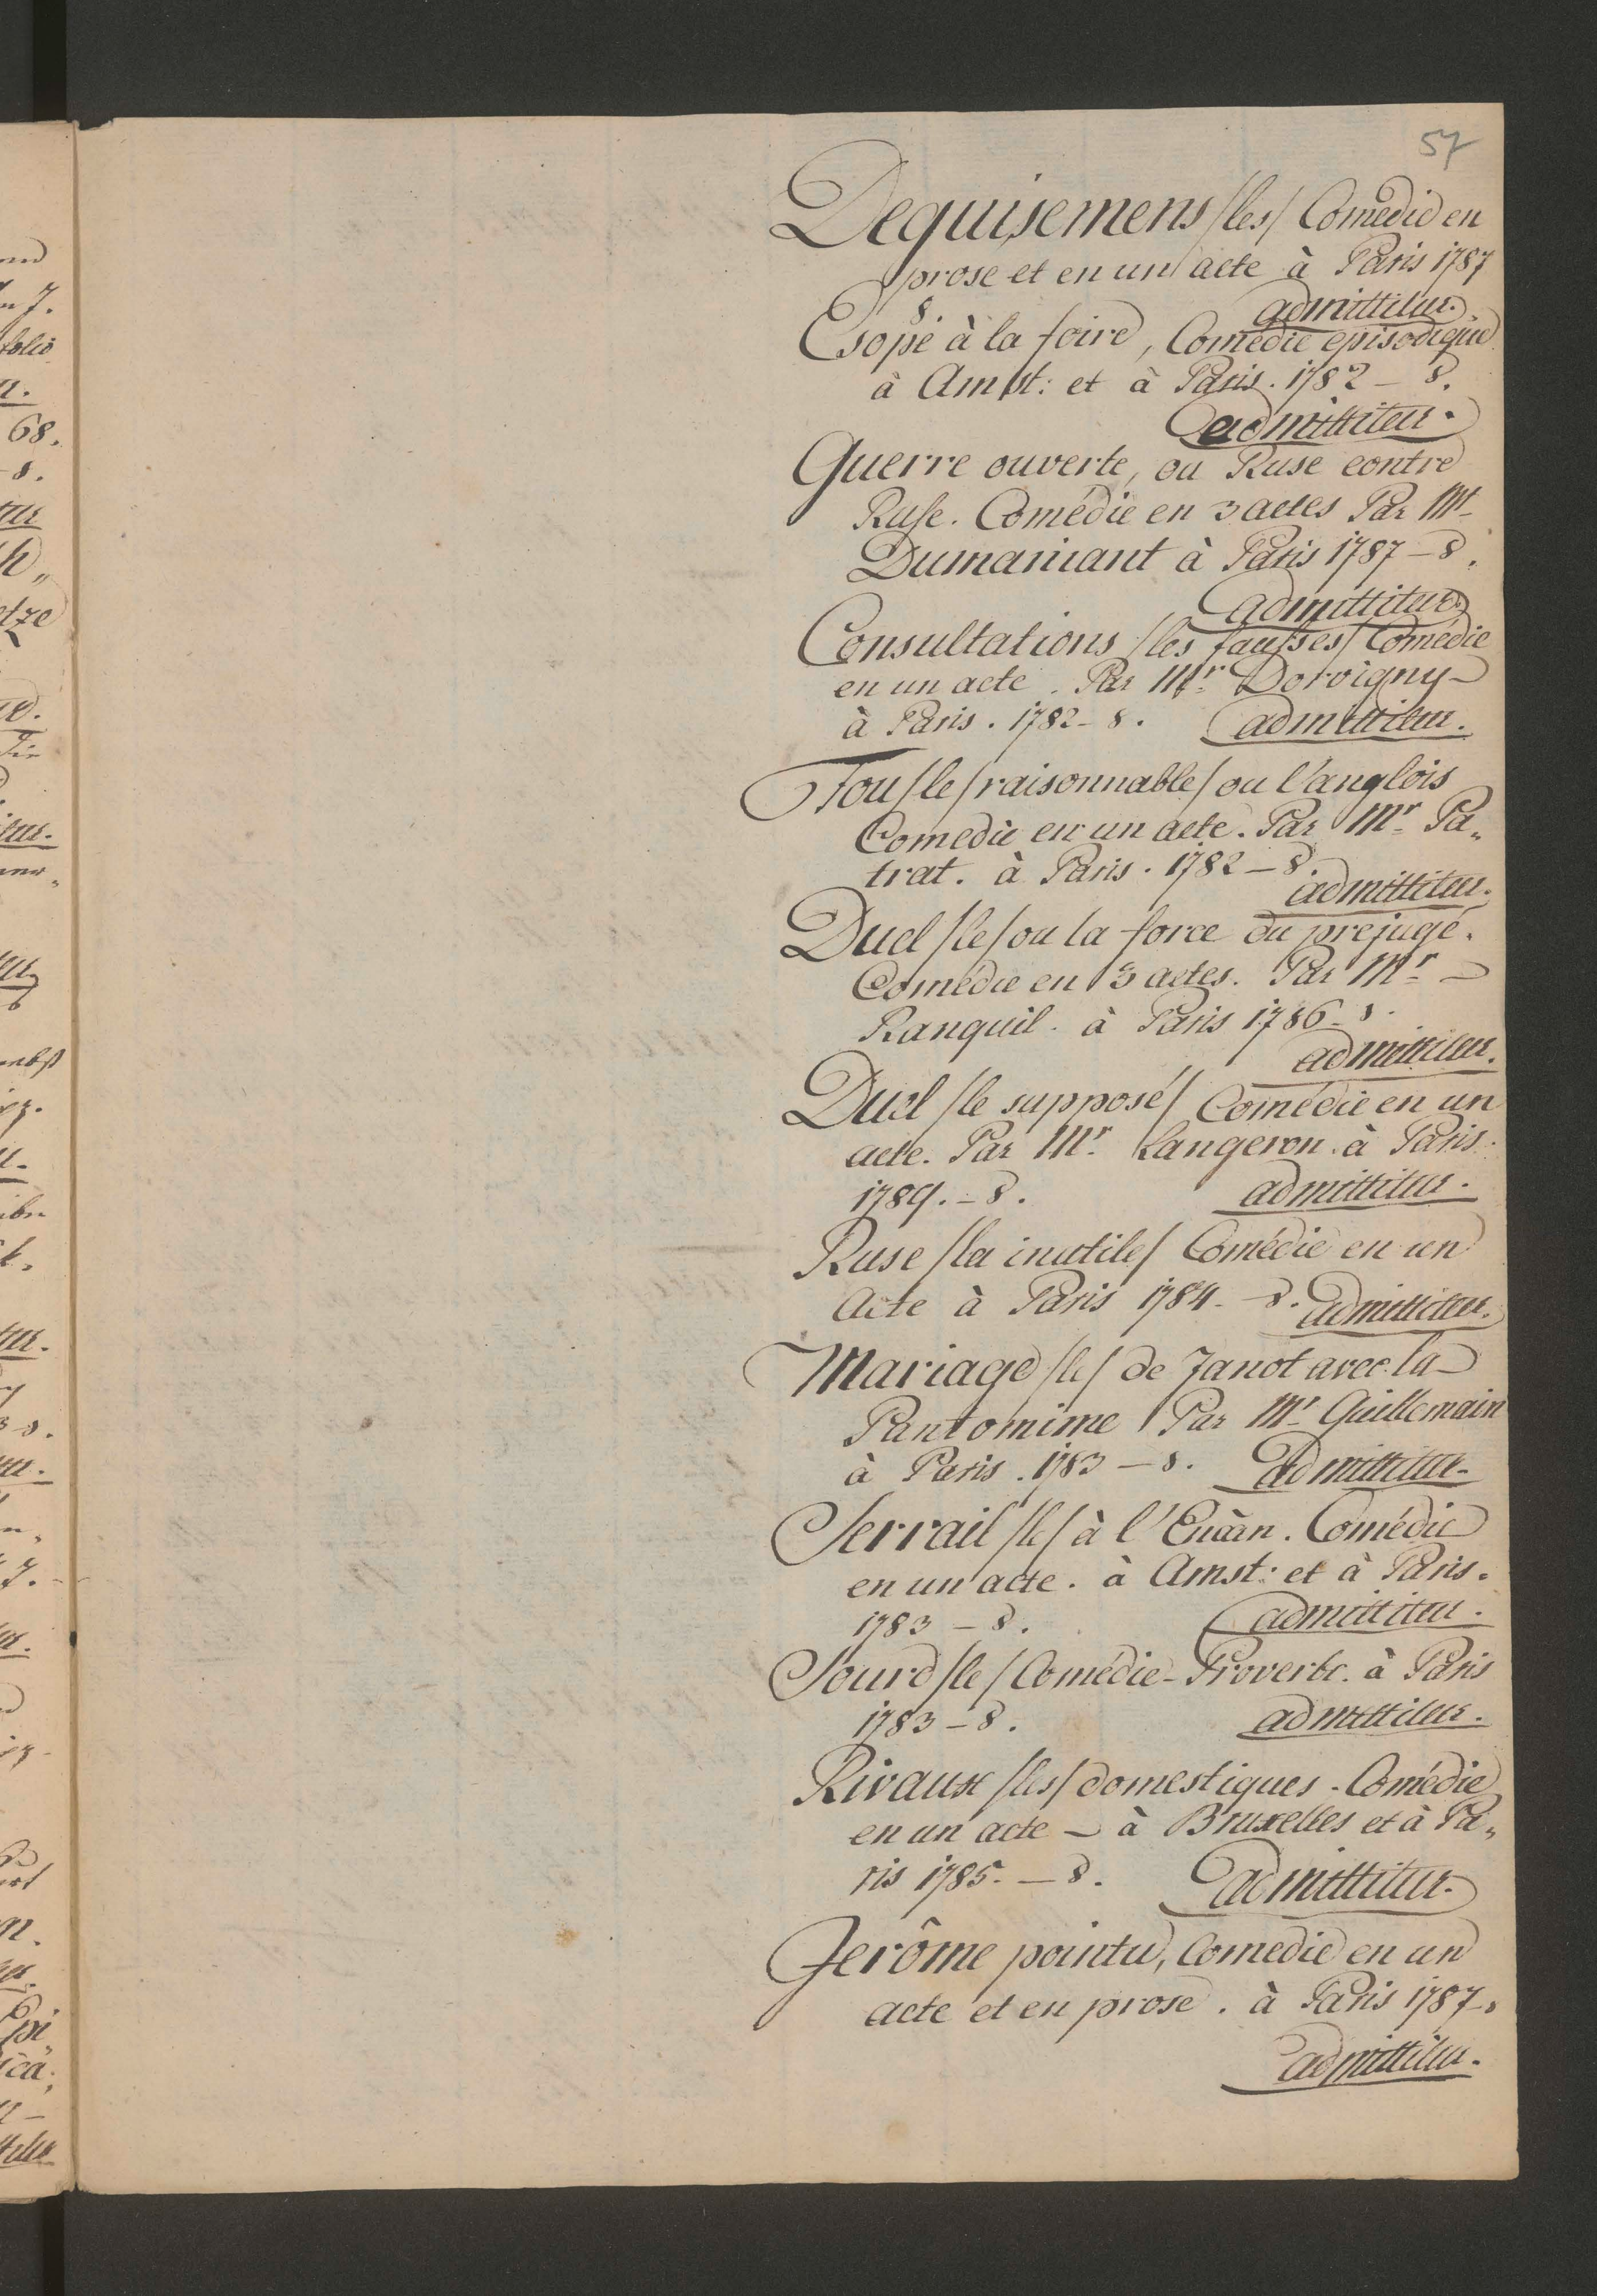 57
Dequisemens /les/ Comedie en
prose et en un acte à Paris 1787
8. admittitur.
Esope à la foire, Comedie episodique
à Amst: et à Paris. 1782 – 8.
admittitur.
Guerre ouverte, ou Ruse contre
Ruse. Comédie en 3 actes Par Mr
Dumaniant à Paris 1787 – 8.
admittitur.
Consultations /les fausses/ Comédie
en un acte. Par Mr. Dorvigny –
à Paris. 1782 – 8. admittitur.
Fou /le/ raisonnable/ ou l'anglois
Comedie en un acte. Par Mr. Pa„
trat. à Paris. 1782 – 8.
admittitur.
Duel /le/ ou la force du prejugé.
Comédie en 3 actes. Par Mr. –
Ranquil. à Paris 1786 – 8.
admittitur.
Duel /le supposé/ Comédie en un
acte. Par Mr. Langeron. à Paris.
1789. – 8. admittitur.
Ruse /la inutile/ Comédie en un
Acte à Paris 1784. – 8. admittitur.
Mariage /le/ de Janot avec la –
Pantomime Par Mr. Guillemain
à Paris. 1783 – 8. admittitur.
Serrail /le/ à l'Encàn. Comédie
en un acte. à Amst: et à Paris.
1783 – 8. admittitur.
Sourd /le/ Comédie-Proverbe. à Paris
1783 – 8. admittitur.
Rivaux /les/ domestiques. Comédie
en un acte – à Bruxelles et à Pa„
ris 1785. – 8. admittitur.
Jerôme pointu, Comedie en un
acte et en prose. à Paris 1787.
admittitur.